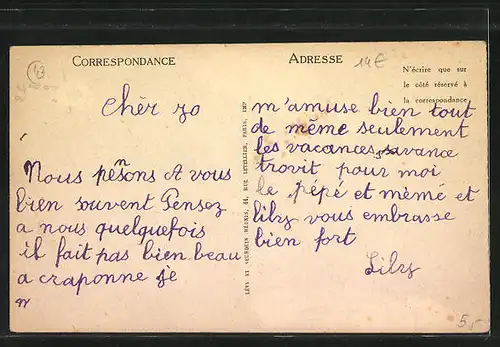 CORRESPONDANCE
ADRESSE
14€
43
N'écrire que sur
le côté réservé à
la correspondance
Chèr zo
Nous pensons à vous
bien souvent Pensez
a nous quelquefois
il fait pas bien beau
a craponne je
m'amuse bien tout
de même seulement
les vacances avance
trovit pour moi
le pépé et mémé et
lily vous embrasse
bien fort
Lily
LÉVY ET NEURDEIN RÉUNIS, 44, RUE LETELLIER, PARIS, IMP
5,-